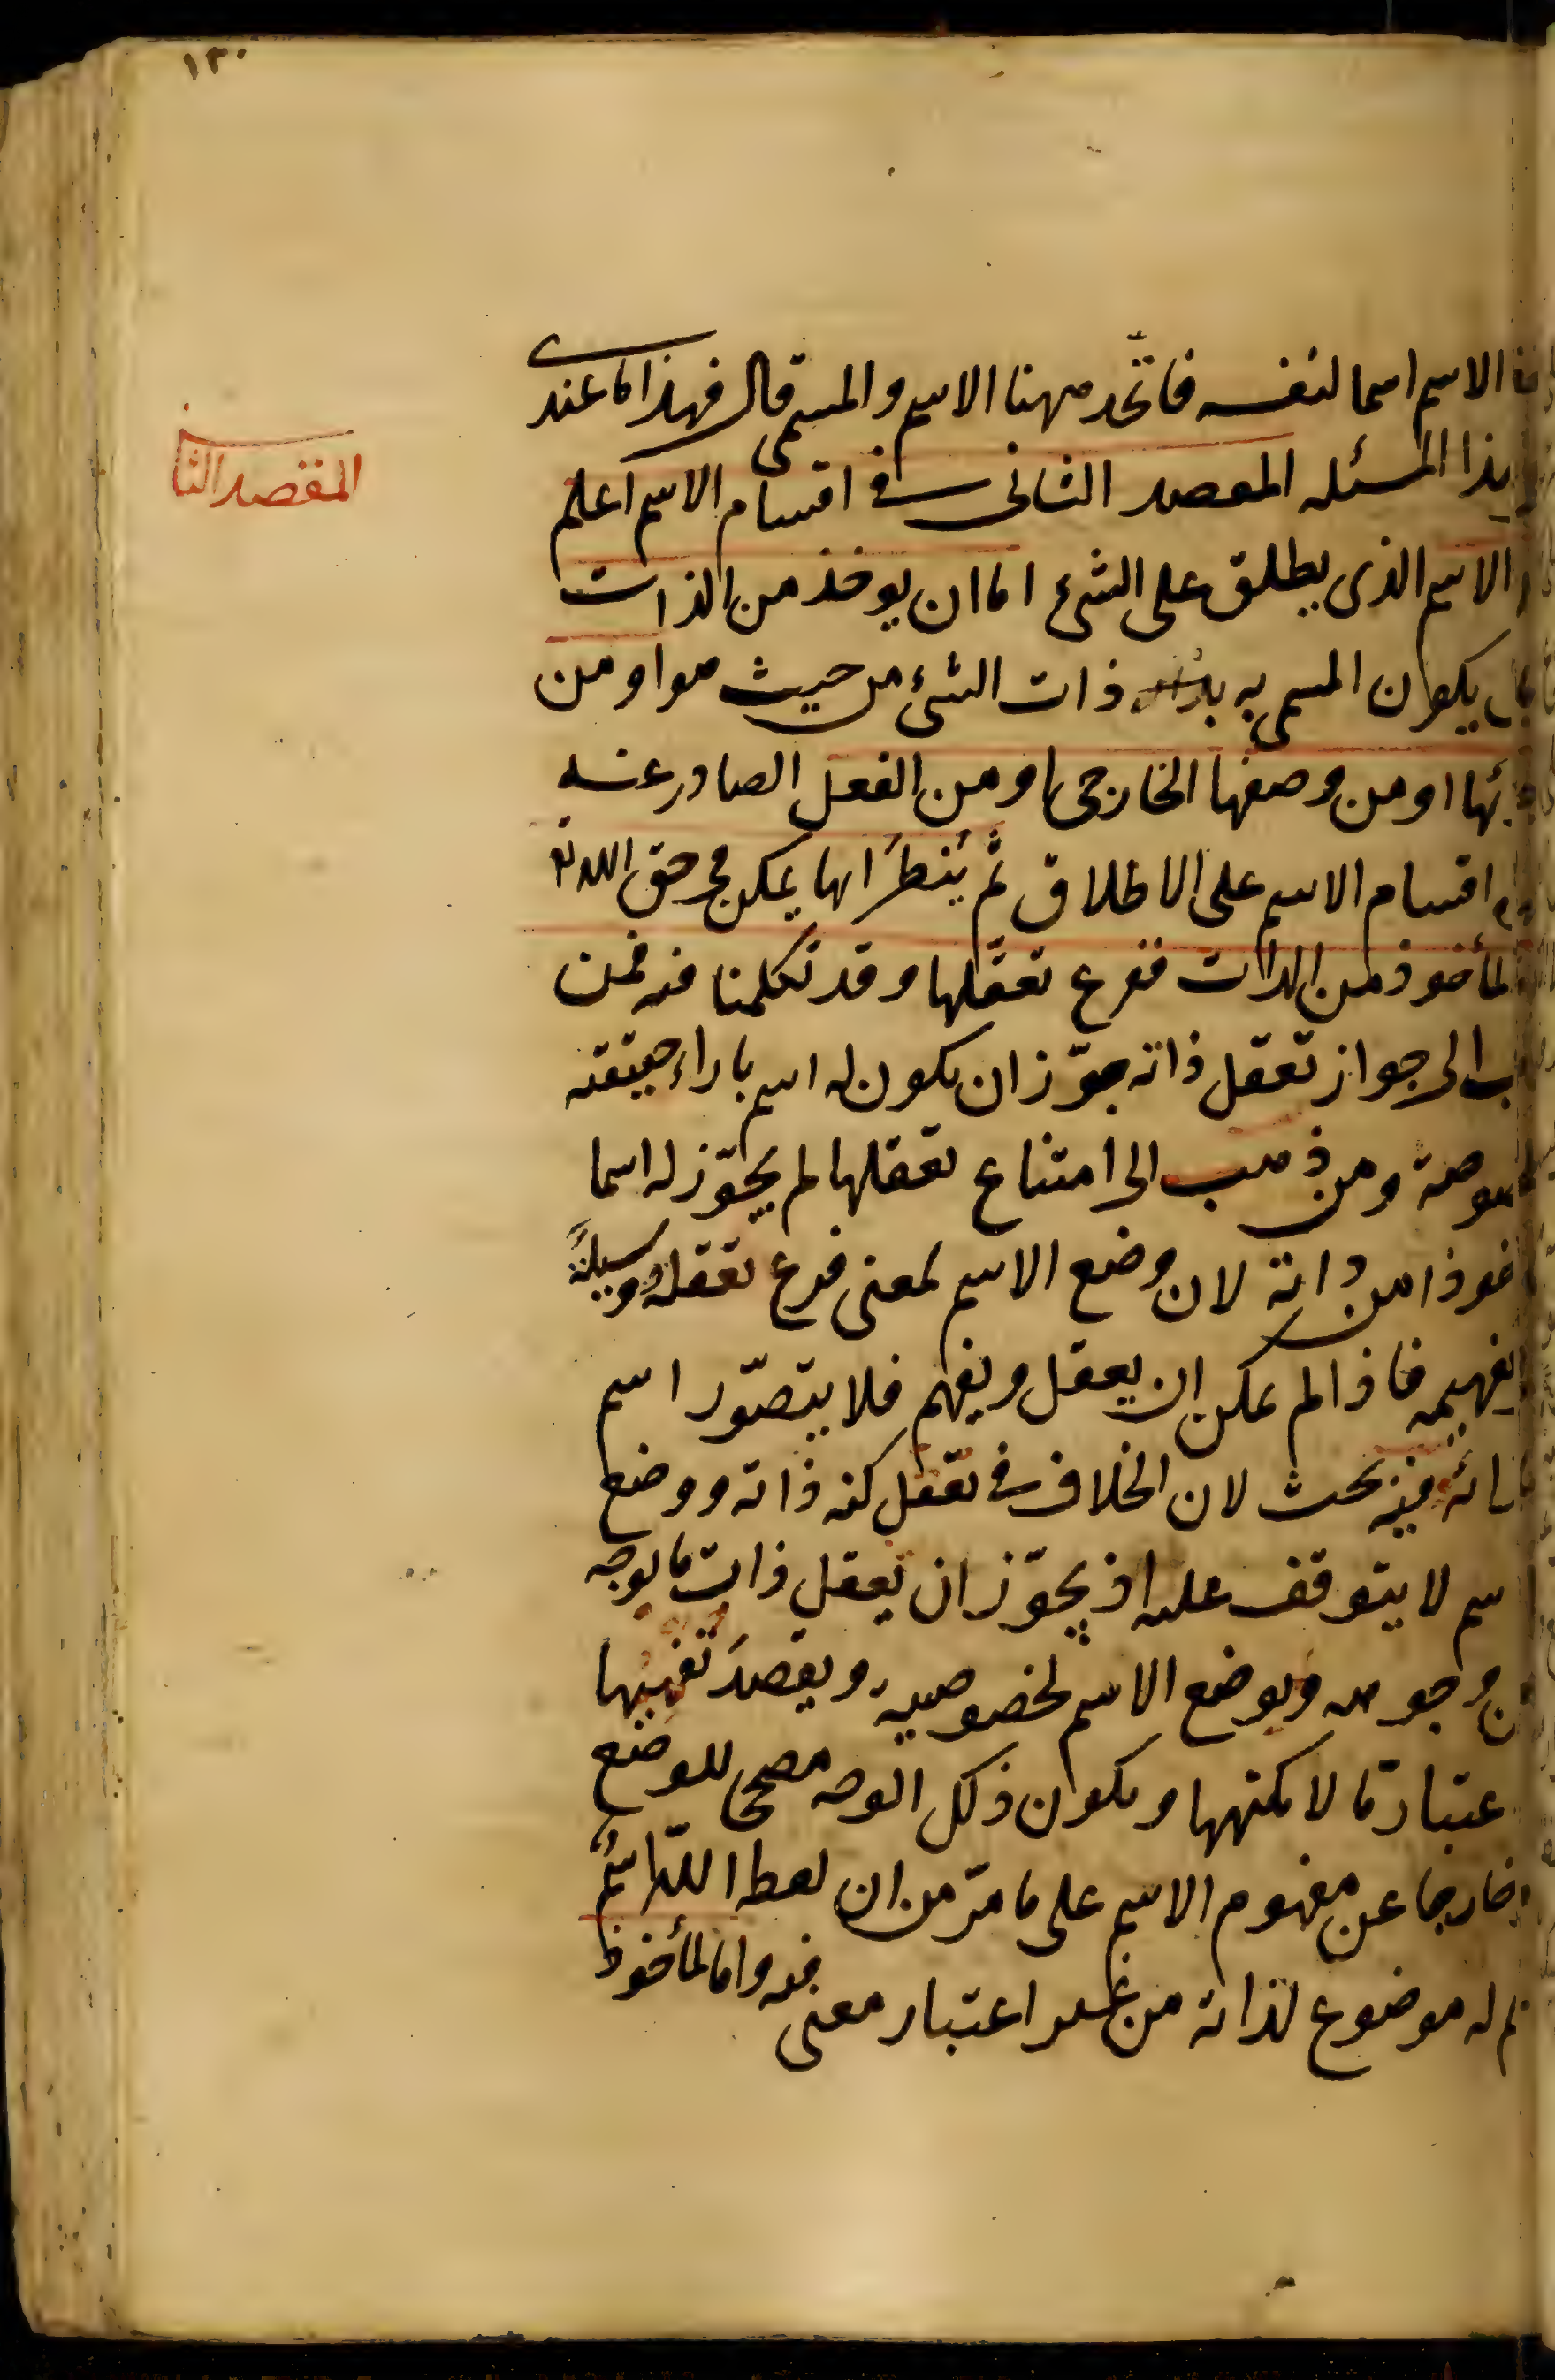 ١٣٠
الاسم اسما لنفسه فاتّحد مهنا الاسم والمسمى قال فهذا ما عندى
هذا المسئله المقصد الثانى فى اقسام الاسم اعلم
المقصد الثا
الاسم الذى يطلق على الشئ اما ان يوخذ من الذات
بان يكون المسمى به ذات الشئ من حيث هو او من
ئها او من وصفها الخارجى او من الفعل الصادر عنه
اقسام الاسم على الاطلاق ثم يُنظَر ايها يمكن فى حق الله تع
لمأخوذ من الذات ففرع تعقّلها وقد تكلمنا فيه فمن
ب الى جواز تعقل ذاته جوّز ان يكون له اسم بازاء حقيقته
صوصة ومن ذهب الى امتناع تعقلها لم يجوّز له اسما
خوذا من ذاته لان وضع الاسم لمعنى فرع تعقله ووسيلةً
تفهيمه فاذا لم يمكن ان يعقل ويفهم فلا يتصوّر اسم
بازائه وفيه بحث لان الخلاف فى تعقل كنه ذاته ووضع
سم لا يتوقف عليه اذ يجوّز ان يعقل ذات ما بوجه
من وجوهه ويوضع الاسم لخصوصيته ويقصد تفهيمها
عتبار ما لا بكنهها ويكون ذلك الوجه مصححا للوضع
خارجا عن مفهوم الاسم على ما مرّ من ان لفظ الله اسمٌ
لم له موضوع لذاته من غير اعتبار معنى فيه واما المأخوذ